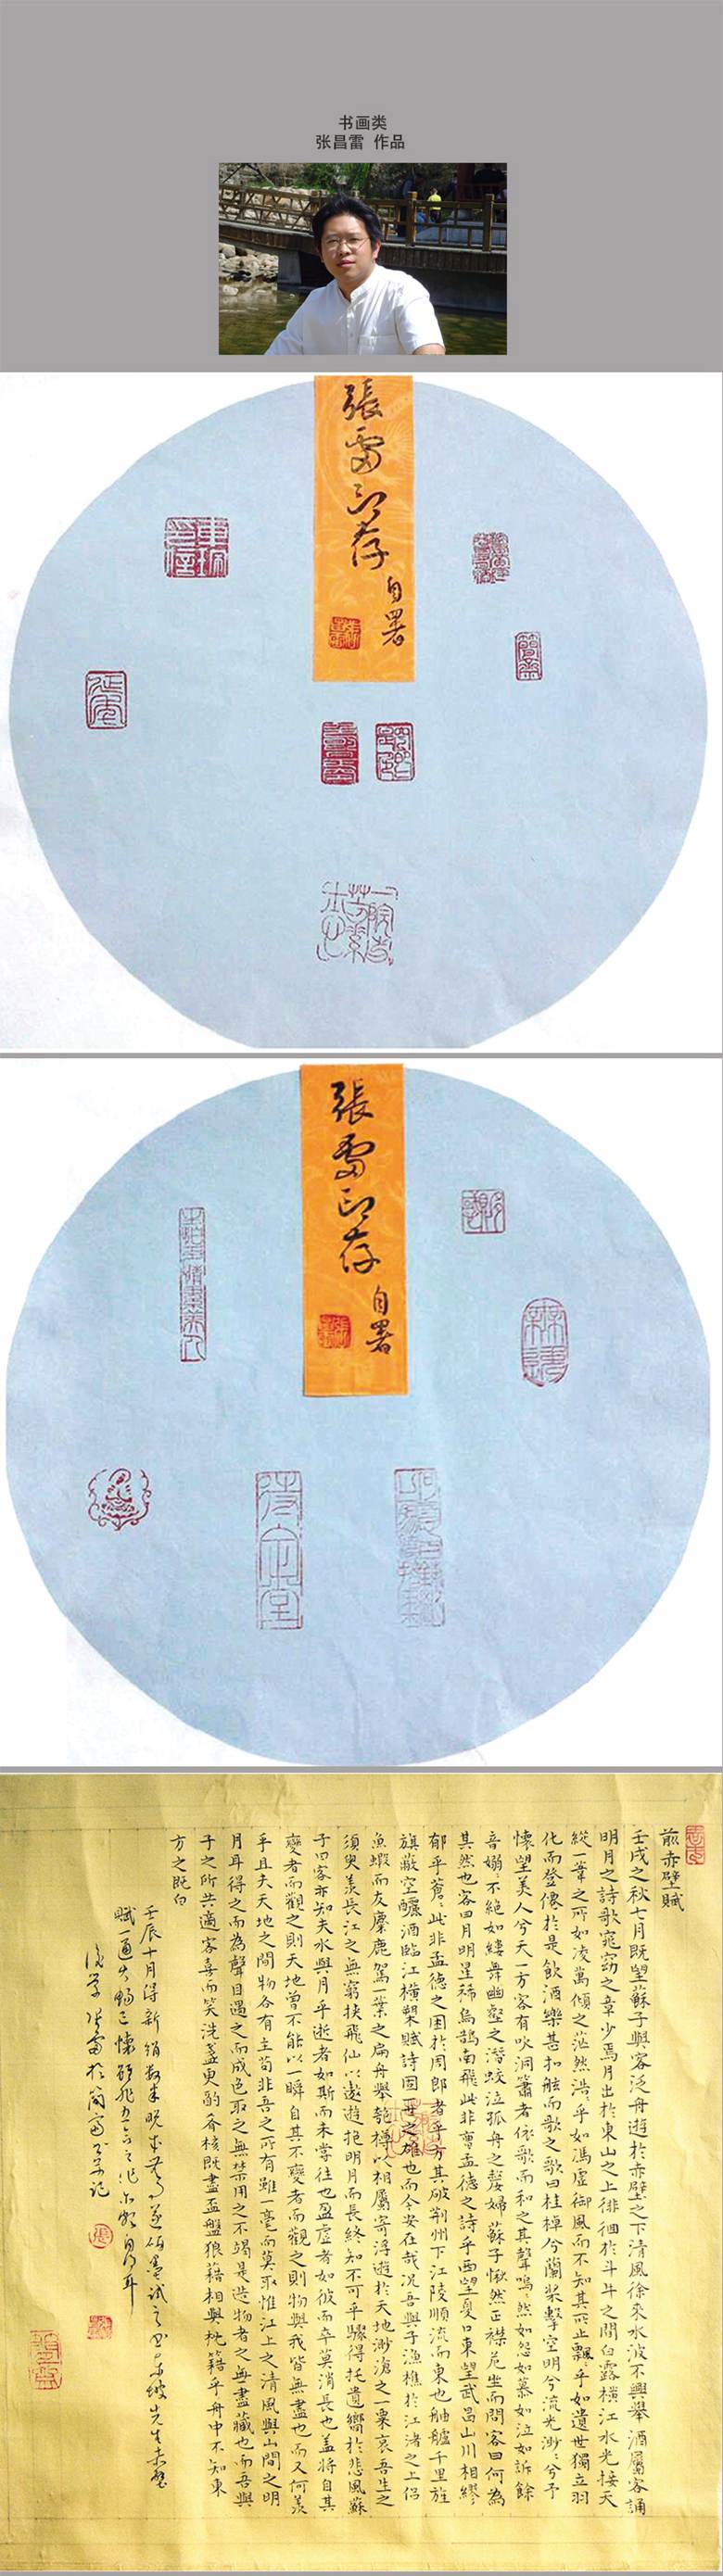 书画类
张昌雷 作品
張雷印存
自署
張雷印存
自署
前赤壁賦
壬戌之秋七月既望蘇子與客泛舟遊於赤壁之下清風徐來水波不興舉酒屬客誦
明月之詩歌窈窕之章少焉月出於東山之上徘徊於斗牛之間白露橫江水光接天
縱一葦之所如凌萬頃之茫然浩々乎如馮虛御風而不知其所止飄々乎如遺世獨立羽
化而登僊於是飲酒樂甚扣舷而歌之歌曰桂棹兮蘭槳擊空明兮流光渺々兮予
懷望美人兮天一方客有吹洞簫者依歌而和之其聲嗚々然如怨如慕如泣如訴餘
音嫋不絕如縷舞幽壑之潛蛟泣孤舟之嫠婦蘇子愀然正襟危坐而問客曰何為
其然也客曰月明星稀烏鵲南飛此非曹孟德之詩乎西望夏口東望武昌山川相繆
郁乎蒼々此非孟德之困於周郎者乎方其破荊州下江陵順流而東也舳艫千里旌
旗蔽空釃酒臨江橫槊賦詩固一世之雄也而今安在哉況吾與子漁樵於江渚之上侶
魚蝦而友麋鹿駕一葉之扁舟舉匏樽以相屬寄浮遊於天地渺滄之一粟哀吾生之
須臾羨長江之無窮挾飛仙以遨遊抱明月而長終知不可乎驟得托遺響於悲風蘇
子曰客亦知夫水與月乎逝者如斯而未嘗往也盈虛者如彼而卒莫消長也蓋將自其
變者而觀之則天地曾不能以一瞬自其不變者而觀之則物與我皆無盡也而又何羨
乎且夫天地之間物各有主苟非吾之所有雖一毫而莫取惟江上之清風與山間之明
月耳得之而為聲目遇之而成色取之無禁用之不竭是造物者之無盡藏也而吾與
子之所共適客喜而笑洗盞更酌肴核既盡杯盤狼藉相與枕籍乎舟中不知東
方之既白
壬辰十月得新絹數
賦一通